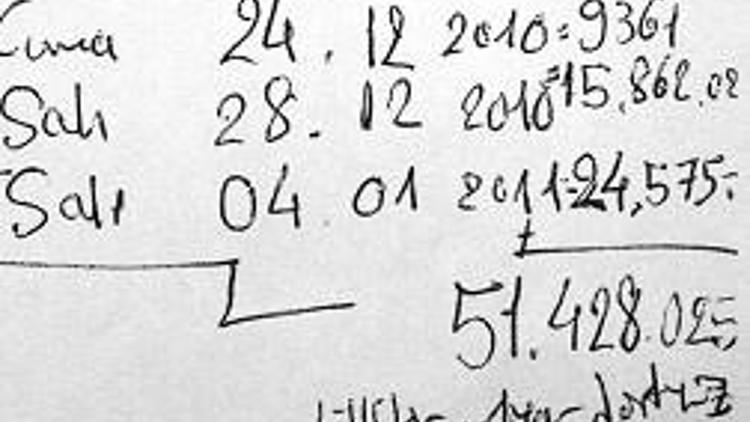 Cuma 24.12 2010=9361
Salı 28.12 2010=15.862.02
Salı 04.01 2011=24,575=
+
51.428.02=